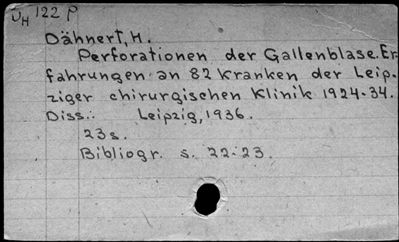 UH 122 P
Dähnert, H.
Perforationen der Gallenblase. Er-
fahrungen an 82 Kranken der Leip-
ziger chirurgischen Klinik 1924-34.
Diss.: Leipzig, 1936.
23 s.
Bibliogr. s. 22-23.